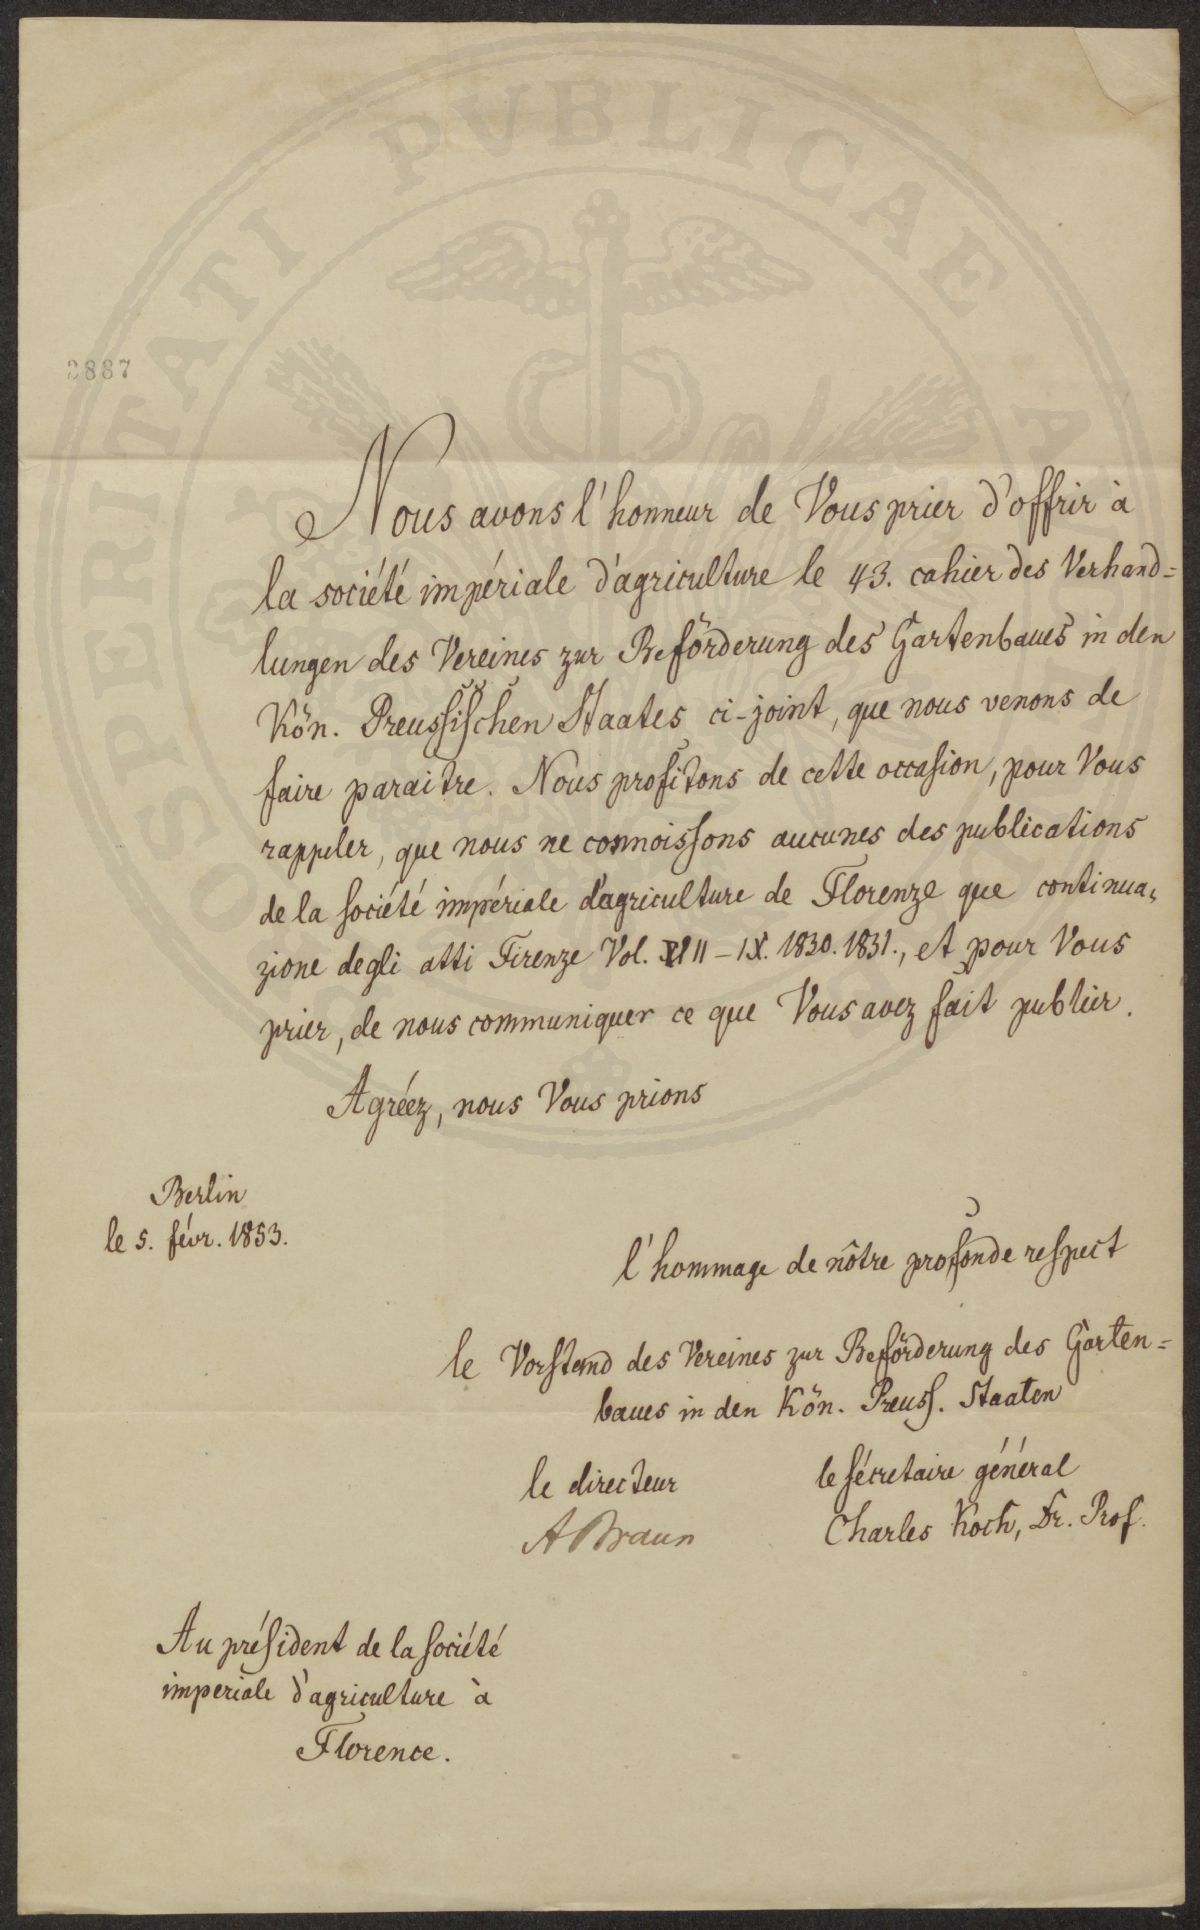 PROSPERITATI PUBLICAE A
2887
Nous avons l'honneur de Vous prier d'offrir à
la société impériale d'agriculture le 43. cahier des Verhand=
lungen des Vereines zur Beförderung des Gartenbaues in den
Kön. Preussischen Staates ci-joint, que nous venons de
faire paraitre. Nous profitons de cette occasion, pour Vous
rappeler, que nous ne connoissons aucunes des publications
de la société impériale d'agriculture de Florenze que continua,
zione degli atti Firenze Vol. VIII – IX. 1830. 1831., et pour Vous
prier, de nous communiquer ce que Vous avez fait publier.
Agréez, nous Vous prions
Berlin
le 5. févr. 1853.
l'hommage de nôtre profonde respect
le Vorstand des Vereines zur Beförderung des Garten=
baues in den Kön. Preuss. Staaten
le directeur
A Braun
le sécretaire général
Charles Koch, Dr. Prof.
Au président de la société
imperiale d'agriculture à
Florence.